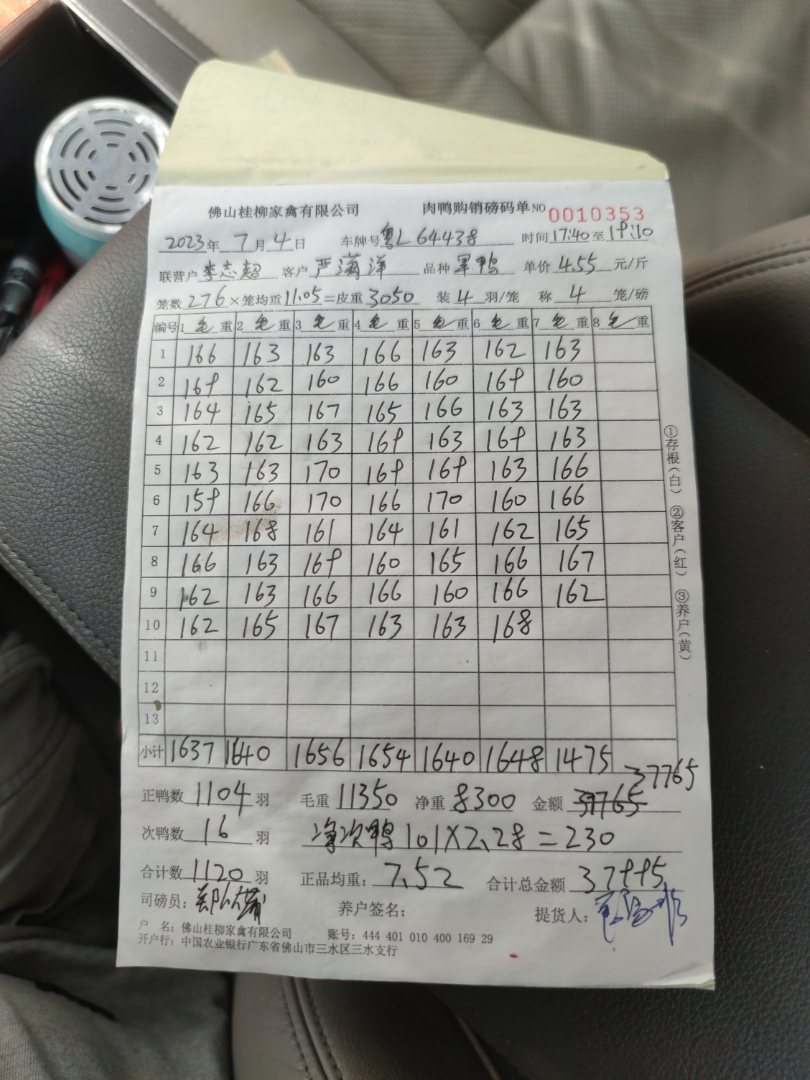 佛山桂柳家禽有限公司 肉鸭购销磅码单 NO 0010353
2023年 7月 4日 车牌号 粤L64438 时间 17:40 至 19:10
联营户 李志超 客户 严满洋 品种 黑鸭 单价 4.55 元/斤
笼数 276 × 笼均重 11.05 = 皮重 3050 装 4 羽/笼 称 4 笼/磅
编号 1 毛重 2 毛重 3 毛重 4 毛重 5 毛重 6 毛重 7 毛重 8 毛重
1 166 163 163 166 163 162 163
2 169 162 160 166 160 169 160
3 164 165 167 165 166 163 163
4 162 162 163 169 163 169 163
5 163 163 170 169 169 163 166
6 159 166 170 166 170 160 166
7 164 168 161 164 161 162 165
8 166 163 169 160 165 166 167
9 162 163 166 166 160 166 162
10 162 165 167 163 163 168
11
12
13
小计 1637 1640 1656 1654 1640 1648 1475
37765
正鸭数 1104 羽 毛重 11350 净重 8300 金额 37765
次鸭数 16 羽 净次鸭 101×2.28=230
合计数 1120 羽 正品均重: 7.52 合计总金额 37995
司磅员: 养户签名: 提货人:
户 名: 佛山桂柳家禽有限公司 账号: 444 401 010 400 169 29
开户行: 中国农业银行广东省佛山市三水区三水支行
①存根(白) ②客户(红) ③养户(黄)